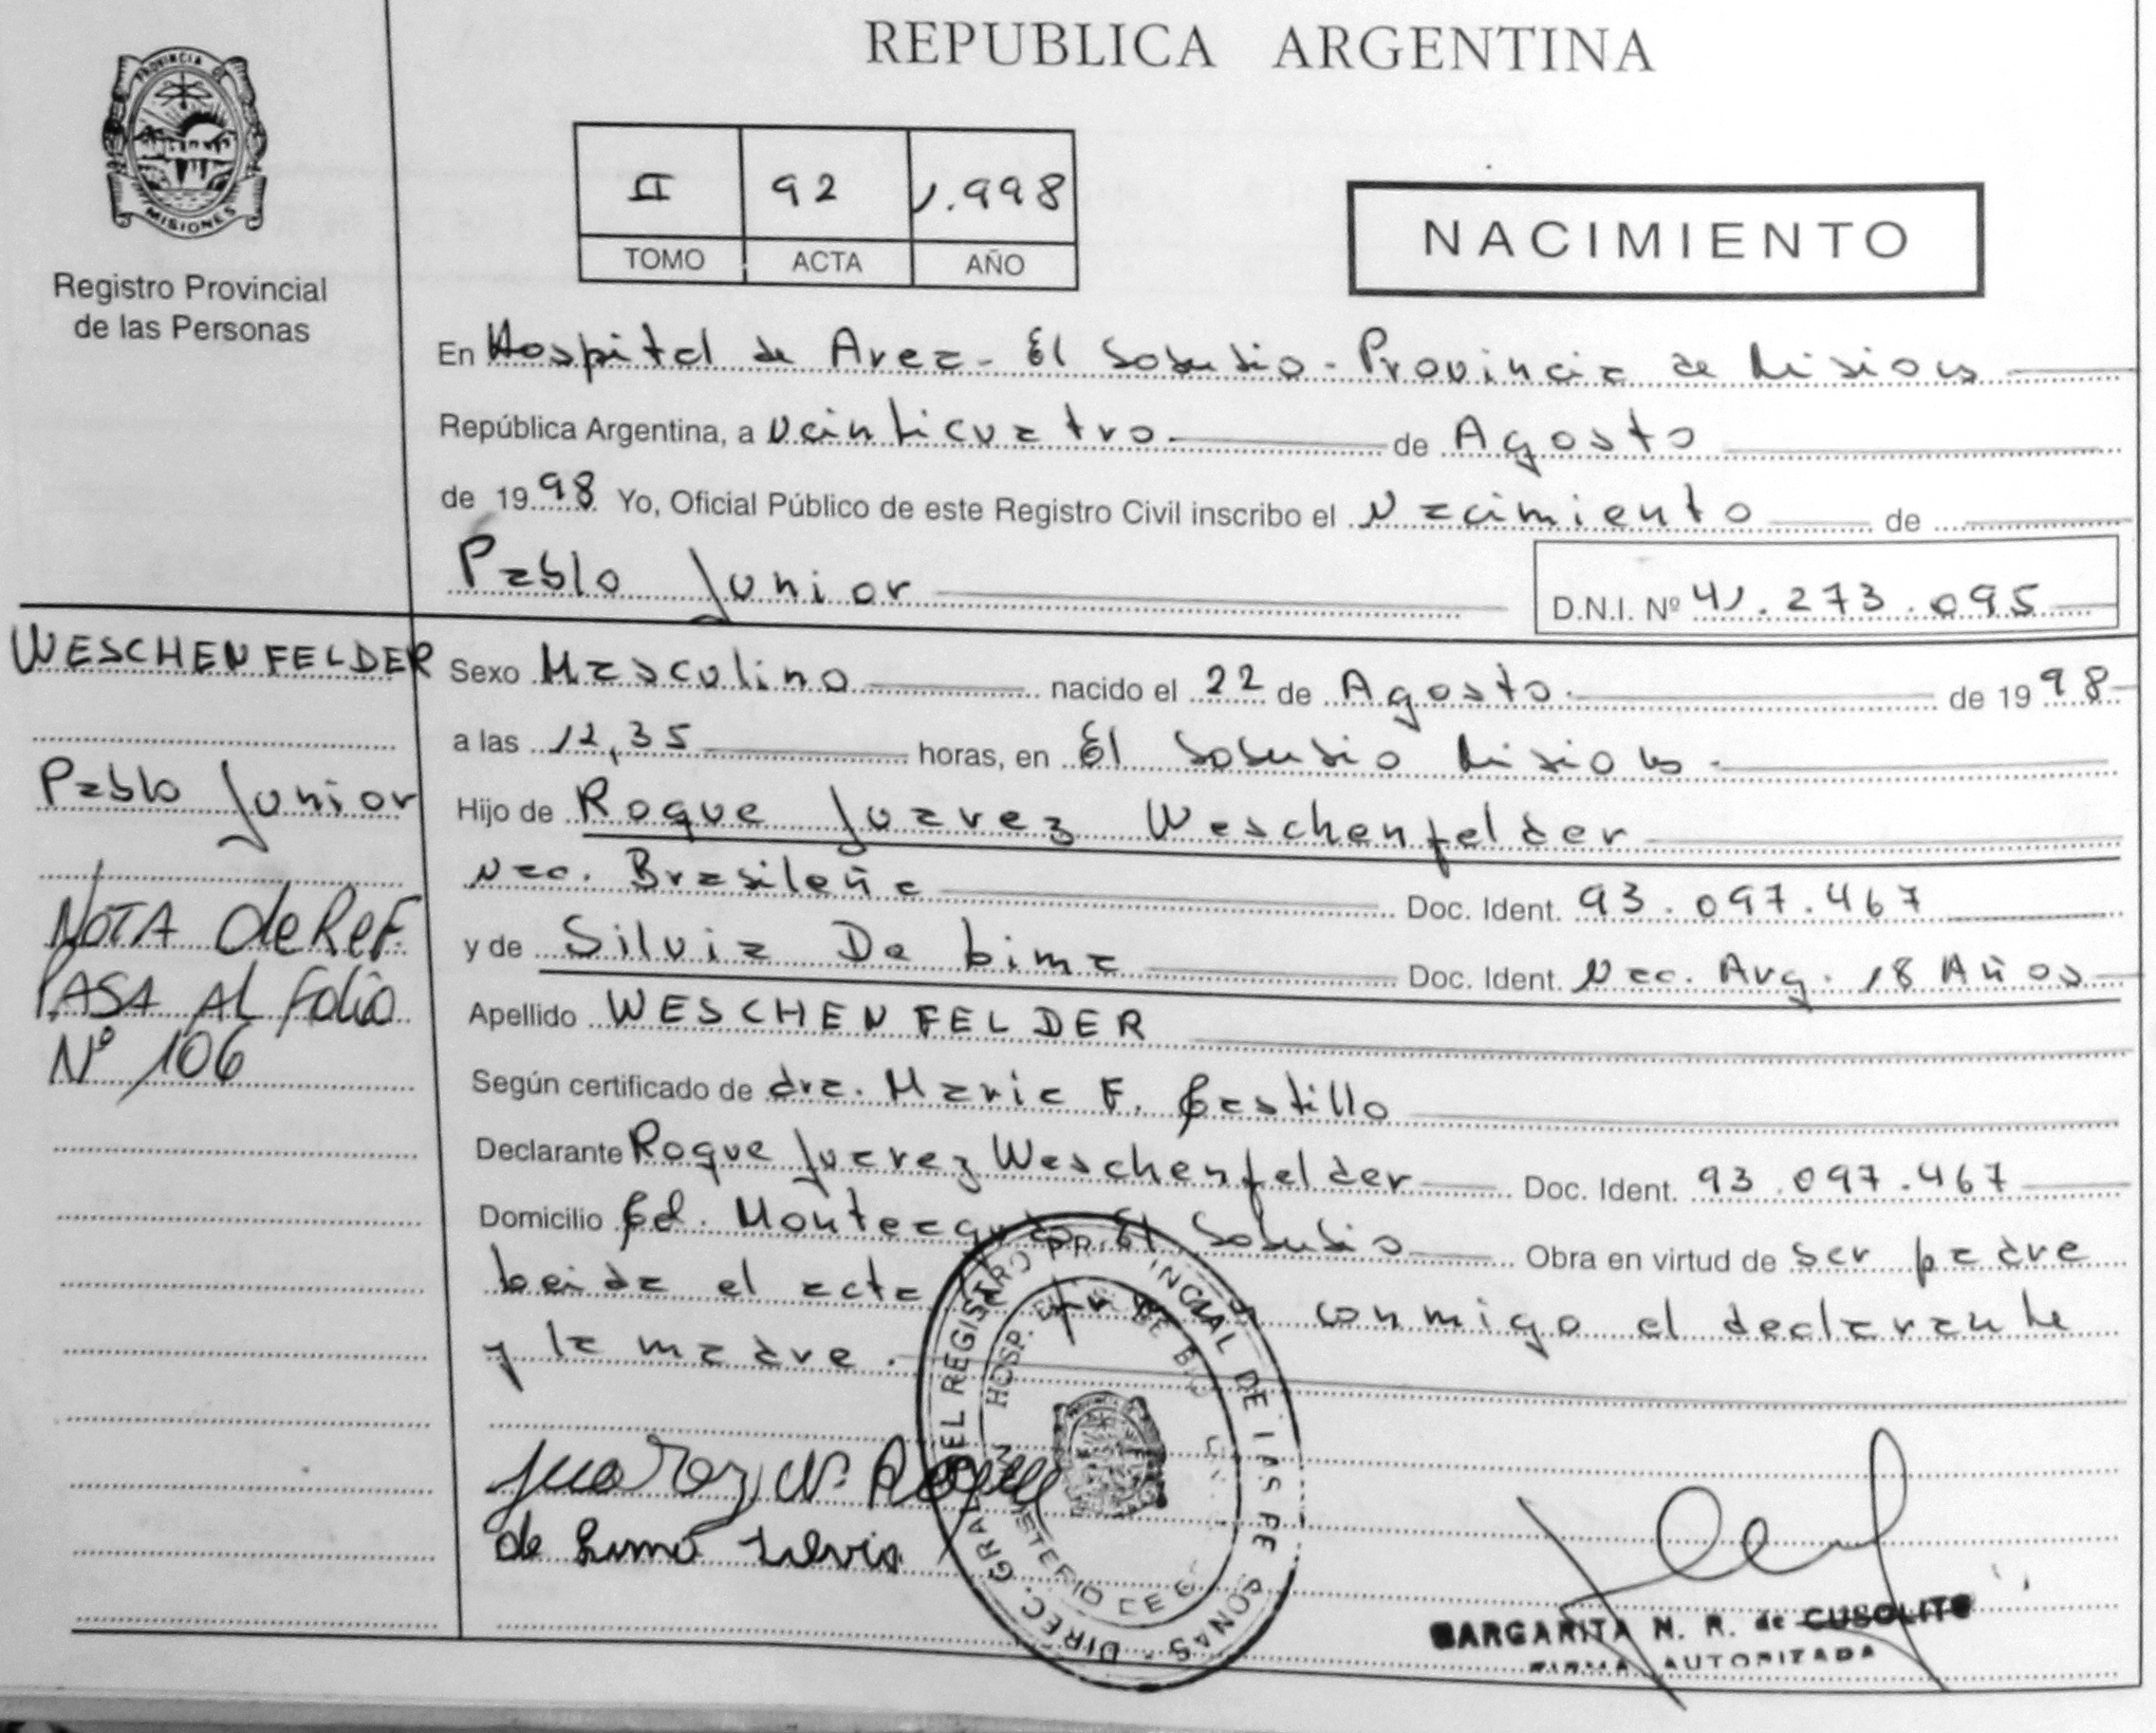 REPUBLICA ARGENTINA
PROVINCIA DE
MISIONES
Registro Provincial
de las Personas
II 92 1.998
TOMO ACTA AÑO
NACIMIENTO
En Hospital de Area - El Soberbio - Provincia de Misiones
República Argentina, a veinticuatro de Agosto
de 1998 Yo, Oficial Público de este Registro Civil inscribo el Nacimiento de
Pablo Junior
D.N.I. Nº 41.273.095
WESCHENFELDER
Pablo Junior
NOTA de REF.
PASA AL Folio
Nº 106
Sexo Masculino nacido el 22 de Agosto. de 1998
a las 12,35 horas, en El Soberbio Misiones.
Hijo de Roque Juarez Weschenfelder
Nac. Brasileña Doc. Ident. 93.097.467
y de Silvia De Lima Doc. Ident. Nac. Arg. 18 Años
Apellido WESCHENFELDER
Según certificado de dra. Maria F. Castillo
Declarante Roque Juarez Weschenfelder Doc. Ident. 93.097.467
Domicilio Cd. Monteagudo El Soberbio Obra en virtud de ser padre
Leida el acta conmigo el declarante
y la madre.
Juarez W. Roque
de Lima Silvia
DIREC. GRAL. DEL REGISTRO PROVINCIAL DE LAS PERSONAS
HOSP.
MINISTERIO DE
MARGARITA N. R. de CUSOLITO
FIRMA AUTORIZADA